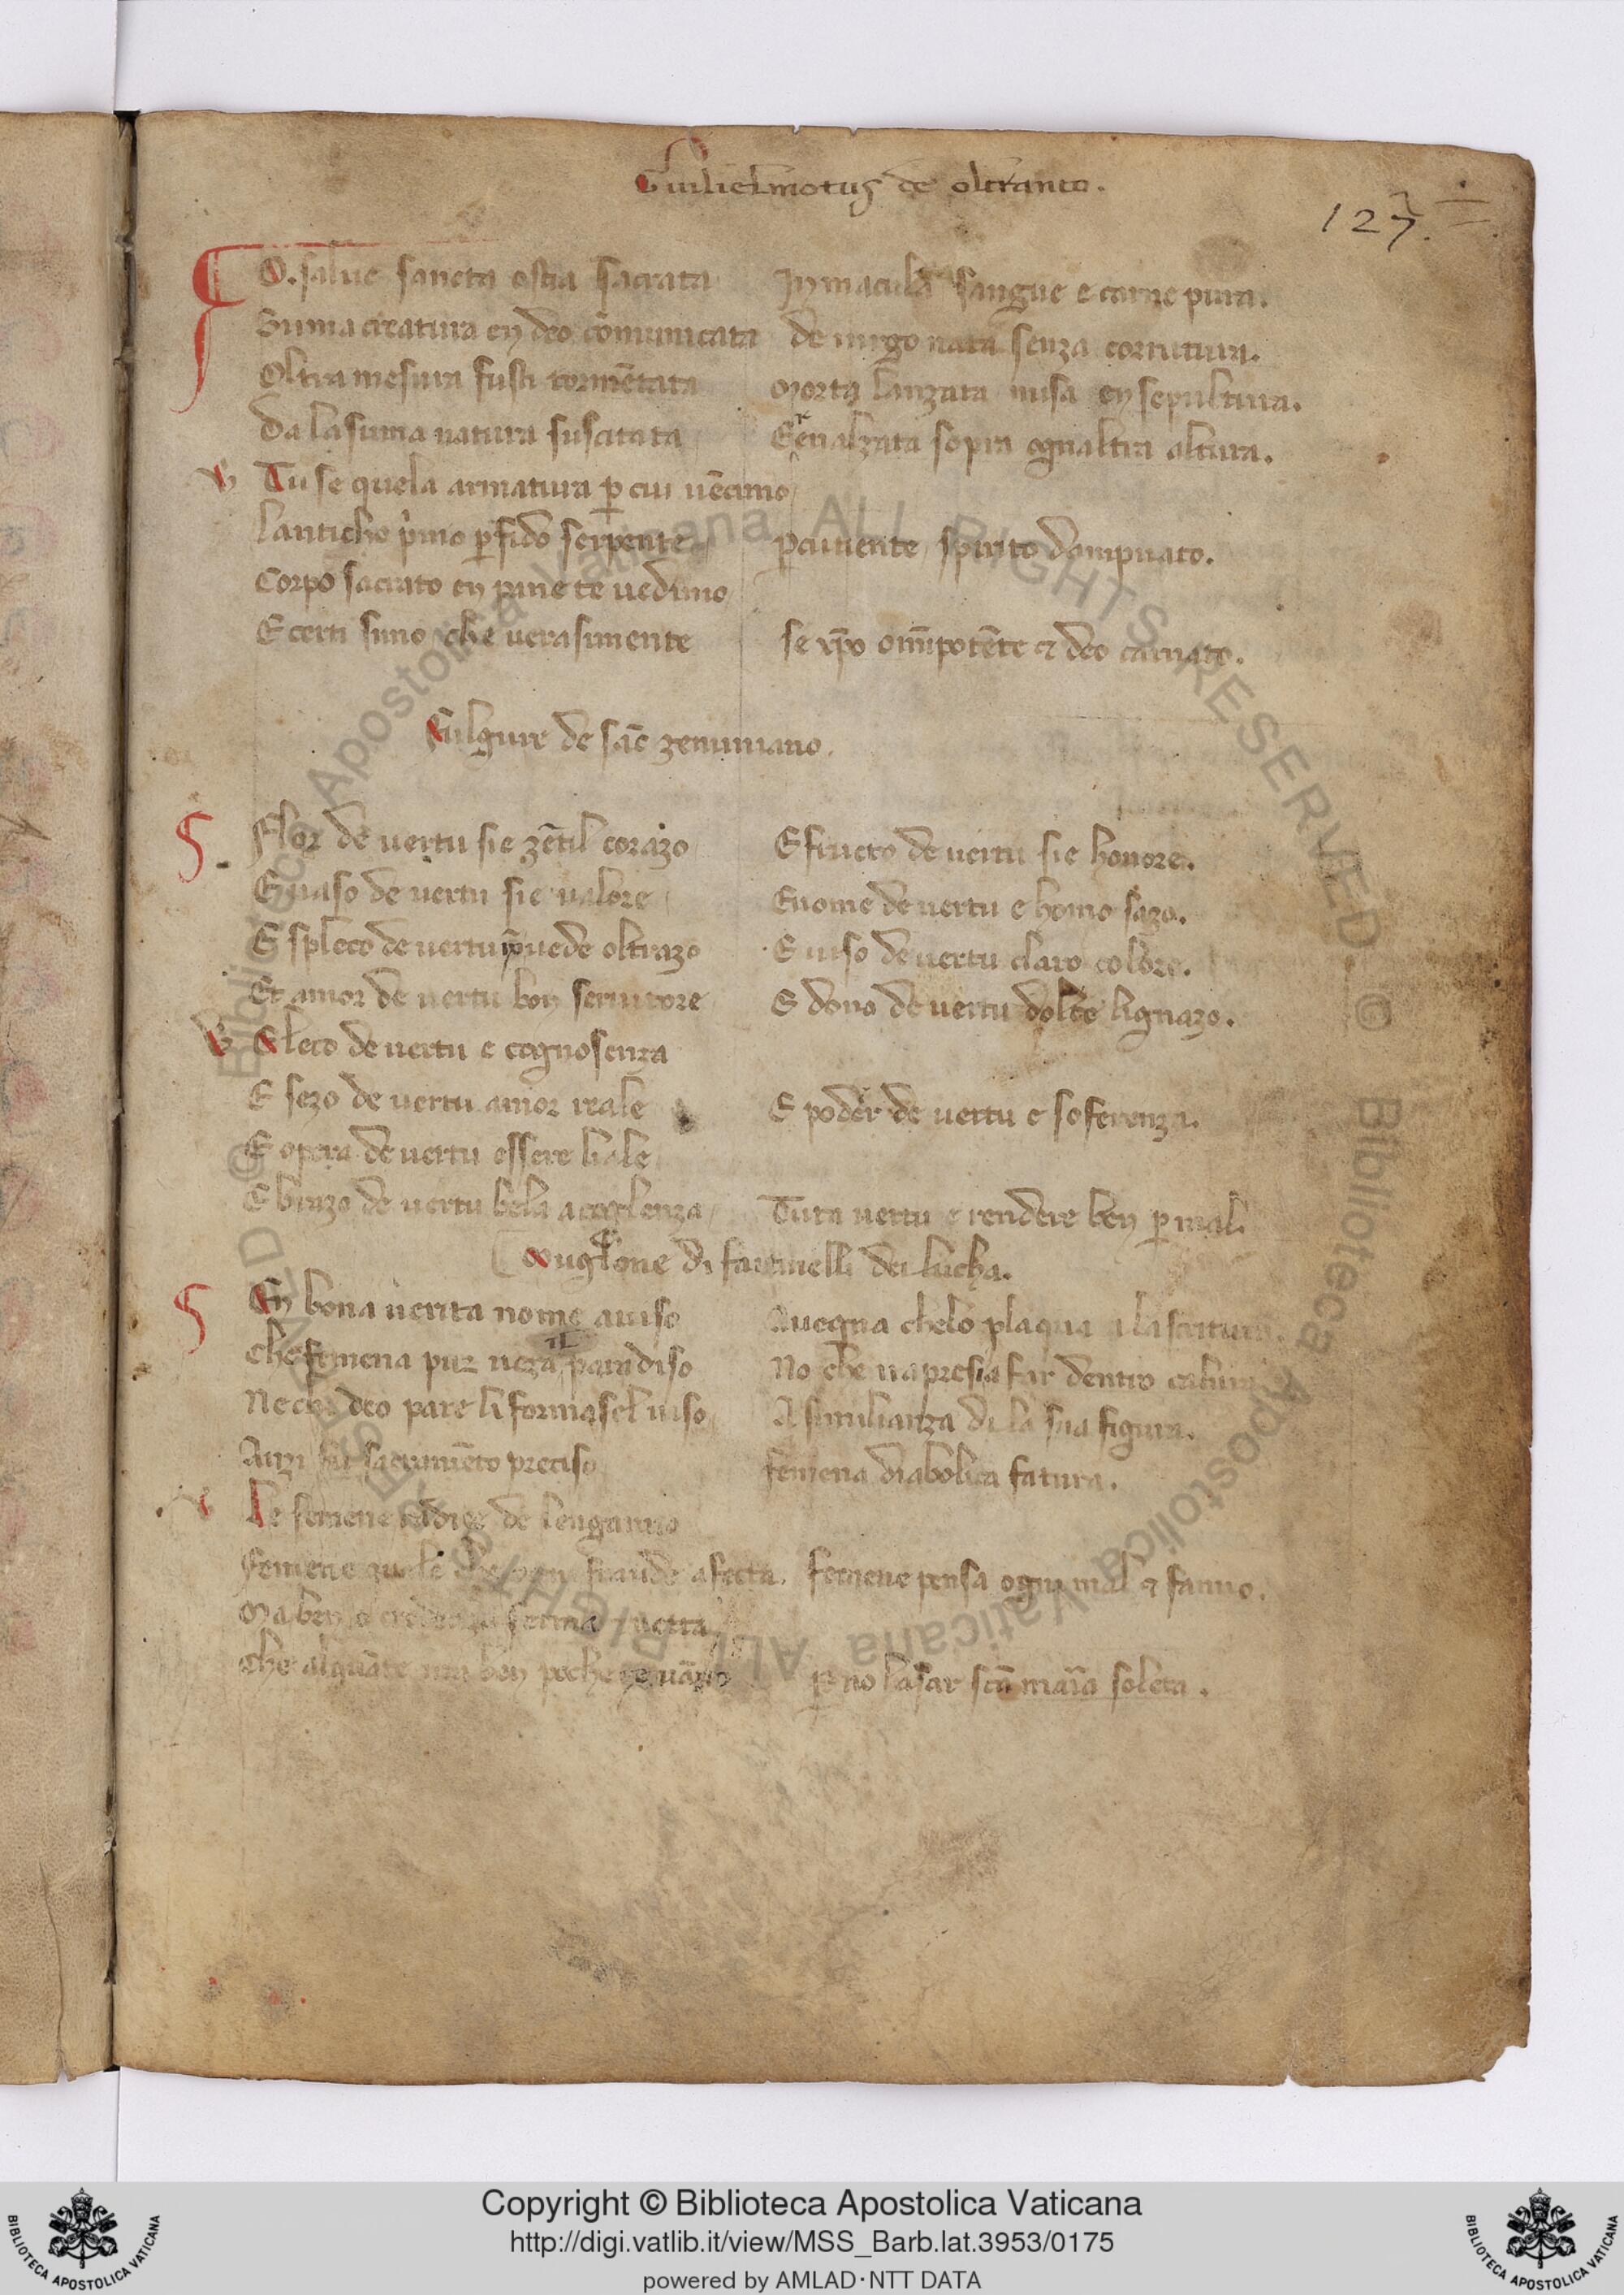 Guilielmotus de oltranto.
127.
O. salue sancta ostia sacrata In maculã sangue e carne pura.
Suma creatura en deo cõmunicata de uirgo nata senza corrutura.
Oltra mesura fusti tormẽtata Morta lanzata misa en sepultura.
Da la suma natura suscitata E enalzata sopra ognaltra altura.
Tu se quela armatura p cui uẽcimo
Lanticho pimo pfido serpente pcuuente spirito dampnato.
Corpo sacrato en pane te uedimo
E certi simo che uerasimente se xp̄o om̄ipotẽte & deo carnato.
Fulgure de sãc zeminiano.
Flor de uertu sie zẽtil corazo E fructo de uertu sie honore.
E uaso de uertu sie ualore E nome de uertu e homo sazo.
E spleco de uertu nõ uede oltrazo E uiso de uertu claro colore.
Et amor de uertu bon seruitore E dono de uertu dolce lignazo.
E leto de uertu e cognosenza
E sezo de uertu amor reale E poder de uertu e soferenza.
E opera de uertu essere liale
E brazo de uertu bela acoglenza Tuta uertu e rendere ben p mal.
MugLone di fatinelli da lucha.
En bona uerita nome auiso Auegna chelo plaqua a la scritura.
Che femena pur ueza il paradiso No che uapresia far dentro
Ne che deo pare li formasel uiso A similianza di la sua figura.
Anzi fu sacramẽto preciso femena diabolica fatura.
Le femene radice de lenganno
Femene quale che fraude afecta. femene pensa ogni mal & fanno.
Ma ben o credenza ferma
Che alquãte ben poche ue uãno p no lasar scã maria soleta.
Copyright © Biblioteca Apostolica Vaticana
http://digi.vatlib.it/view/MSS_Barb.lat.3953/0175
powered by AMLAD·NTT DATA
BIBLIOTECA APOSTOLICA VATICANA
BIBLIOTECA APOSTOLICA VATICANA
© Biblioteca Apostolica Vaticana ALL RIGHTS RESERVED © Biblioteca Apostolica Vaticana ALL RIGHTS RESERVED